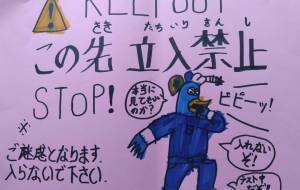 KEEP OUT
さき たちいりきんし
この先 立入禁止
STOP!
本当に
見てもいい
のか?
ピピーッ!
※
ご迷惑となります.
入らないで下さい.
入れない
ぞ!
テスト中
だぞ!